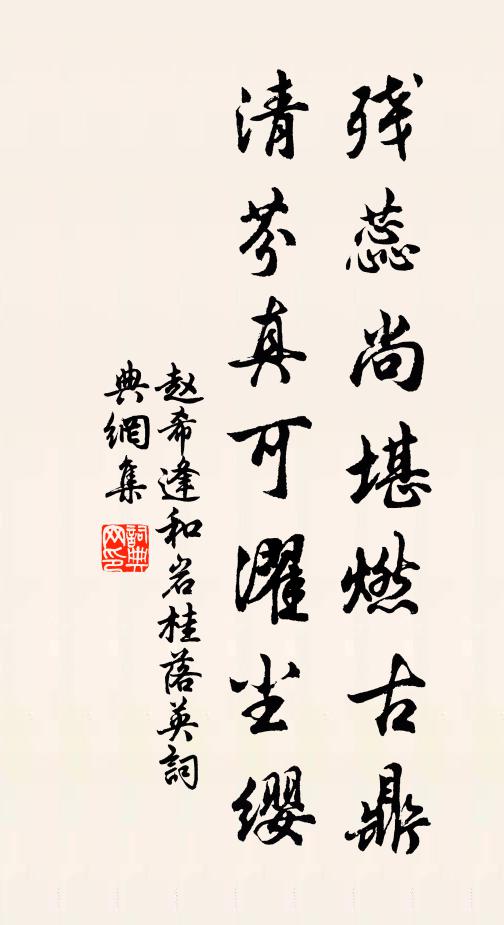 残蕊尚堪燃古鼎
清芬真可濯尘缨
赵希逢和岩桂落英詞
典網集
詞典网印